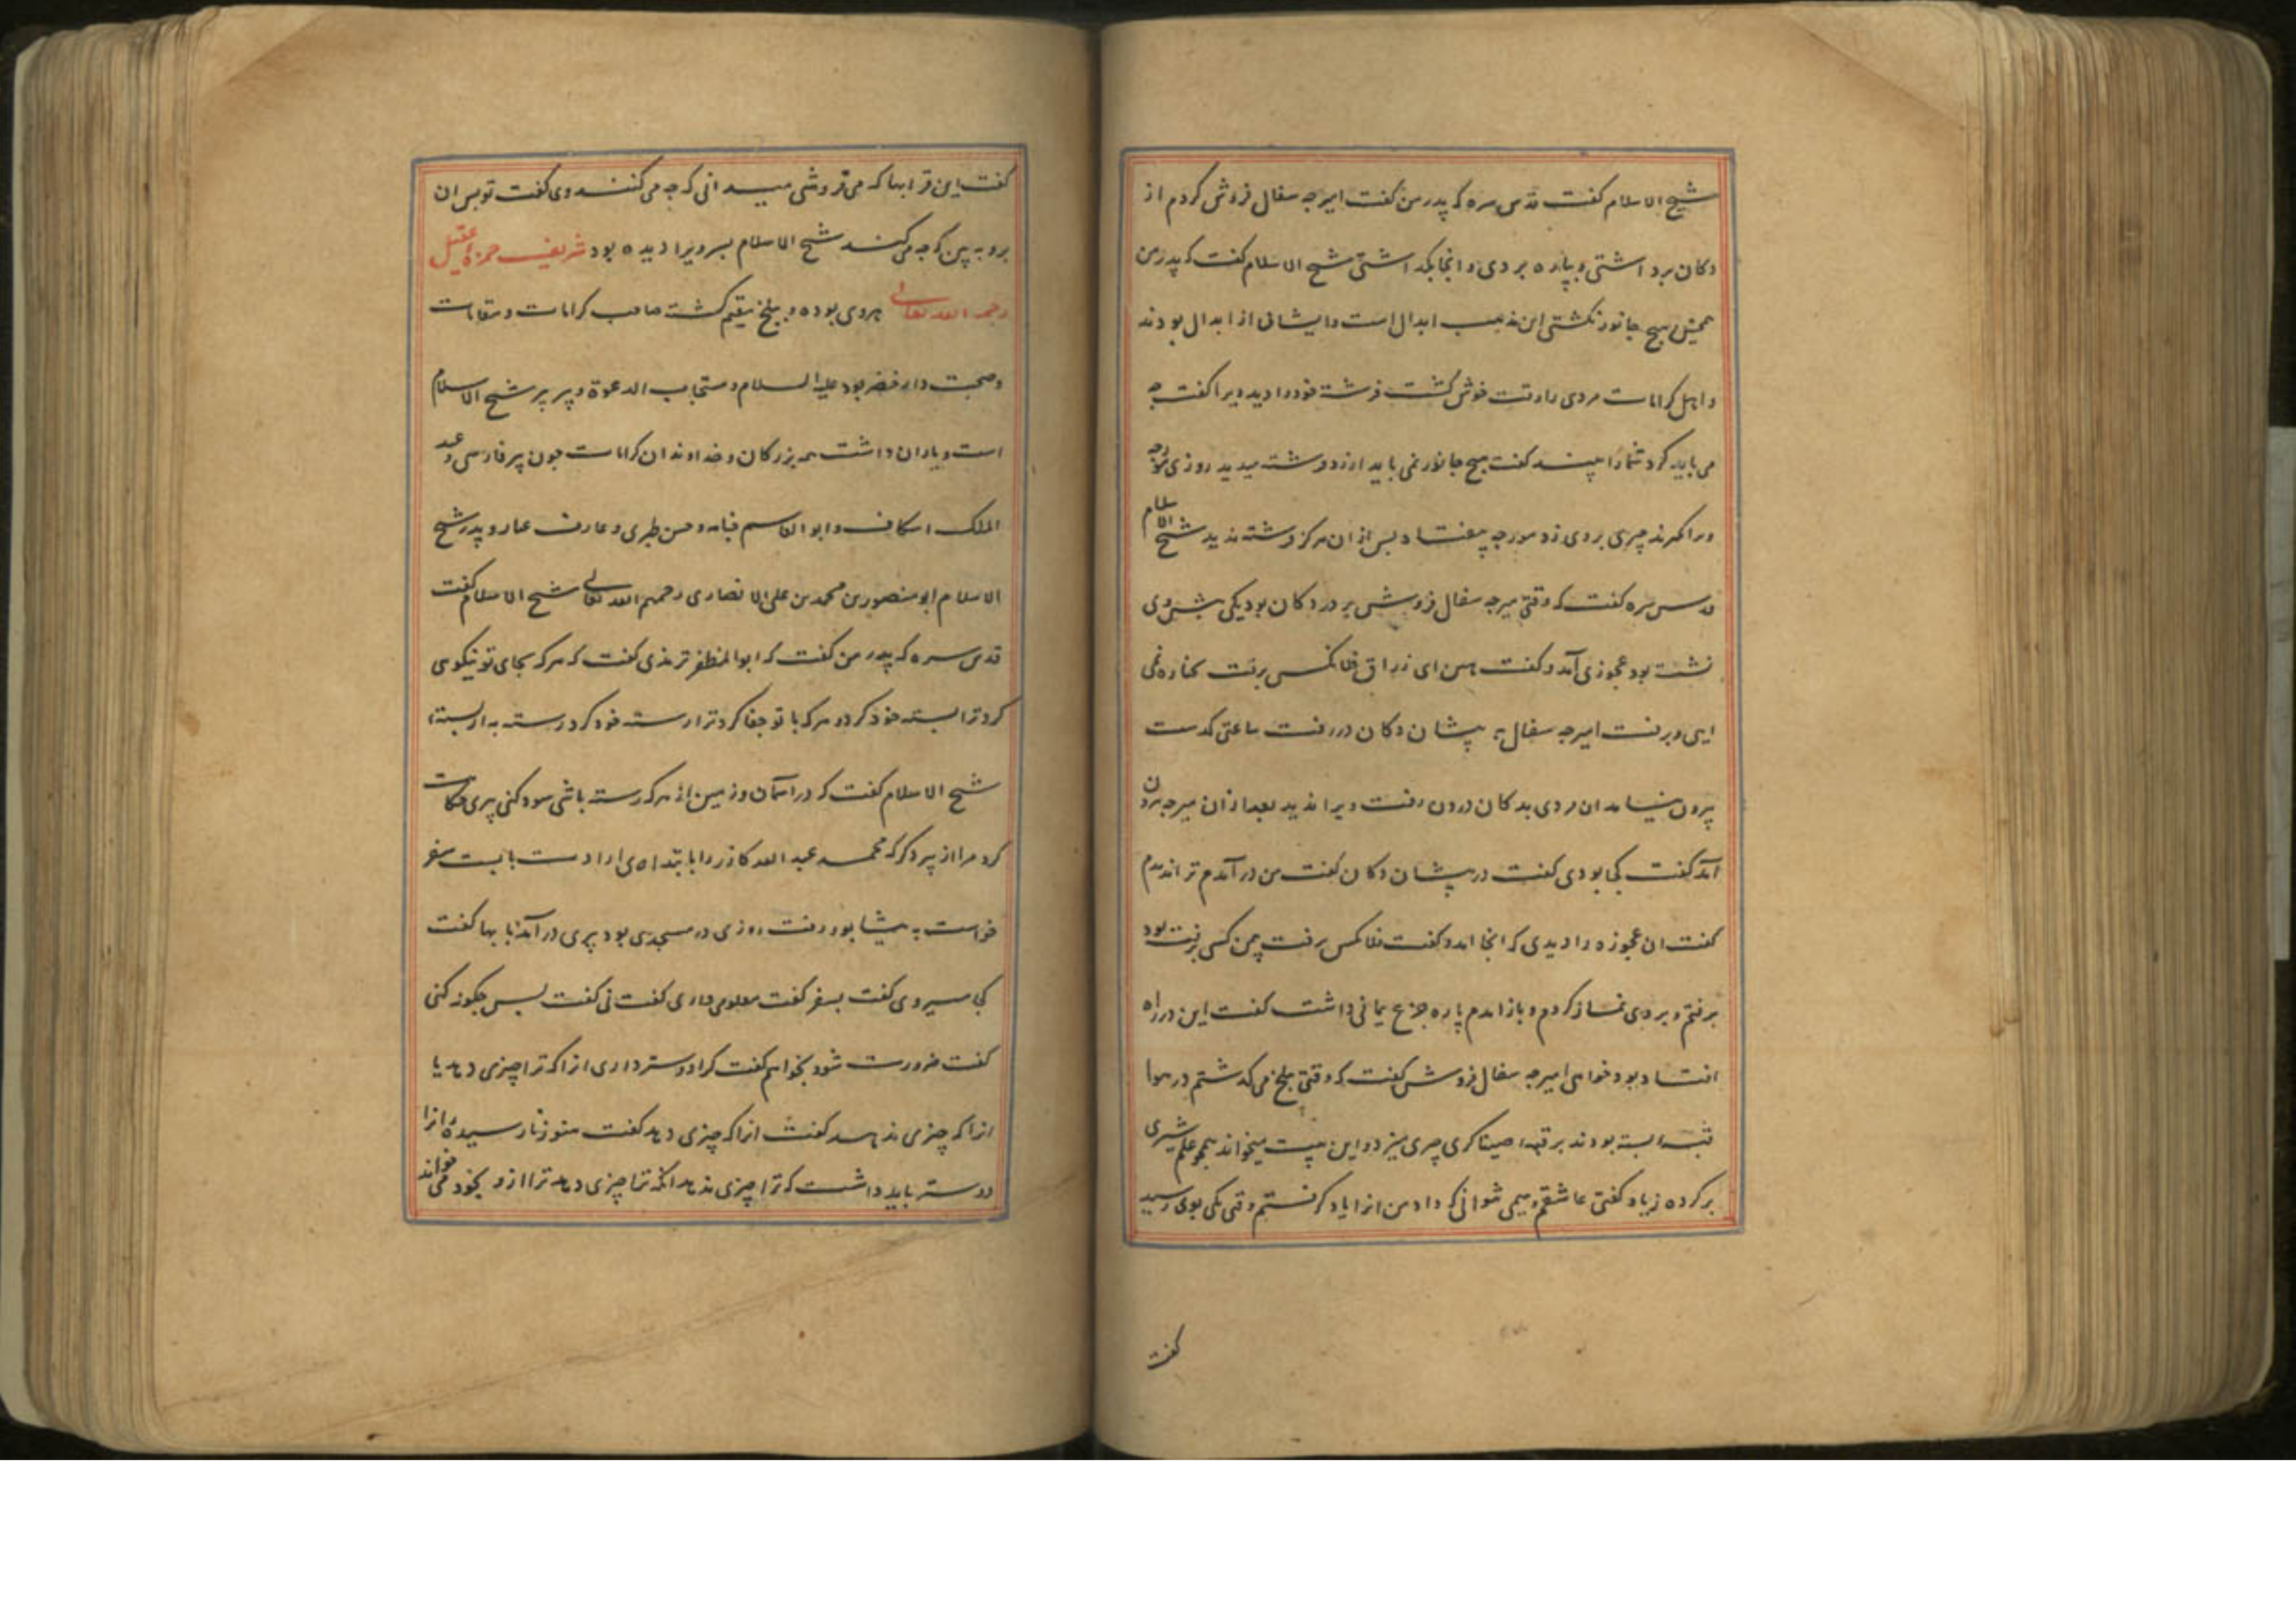 شیخ الاسلام گفت قدس سره که پدر من گفت امیرجه سفال فروش کردم از
دکان برداشتی و بپاره بردی و انجا بگذاشتی شیخ الاسلام گفت که پدر من
همچنین هیچ جانور نکشتی این مذهب ابدال است و ایشانی از ابدال بودند
و اهل کرامات مردی را وقت خوش گشت فرشته خود را دید ویرا گفت چه
می باید کرد شما را بیند گفت هیچ جانور نمی باید ازرد و فرشته میدید روزی مورجه
ویرا بگزید چیزی بر وی زد مورجه بیفتاد پس از ان هرگز فرشته ندید شیخ الاسلام
قدس سره گفت که وقتی میرجه سفال فروش بر در دکان بود یکی پیش وی
نشسته بود عجوزی آمد و گفت هین ای زراق فلانکس برفت بجنازه نمی
ایی و برفت امیرجه سفال به پیشان دکان در رفت ساعتی گذشت
بیرون نیامد ان مردی بدکان درون رفت ویرا ندید بعد از ان میرجه برون
آمد گفت کجا بودی گفت در پیشان دکان گفت من در آمدم ترا ندیدم
گفت ان عجوزه را دیدی که انجا امد و گفت فلانکس برفت چنین کسی برفته بود
برفتم و بر وی نماز کردم و باز امدم پاره جزع یمانی داشت گفت این در راه
افتاده بود خواهی امیرجه سفال فروش گفت که وقتی ببلخ می گذشتم در هوا
قبه بسته بودند بر قبه
بر کرده زیاد گفتی عاشقم و می شوانی که داد من انرا یاد گرفتم وقتی یکی بوی رسید
گفت
گفت این قرابها که می فروشی میدانی که چه می کنند وی گفت تو پس ان
برو به بین که چه می کنند شیخ الاسلام پسر ویرا دیده بود شریف حمزه عقیلی
رحمه الله تعالی هروی بوده و ببلخ مقیم گشته صاحب کرامات و مقامات
و صحبت دار خضر بود علیه السلام و مستجاب الدعوة و پیر پدر شیخ الاسلام
است و یاران داشت همه بزرگان و خداوندان کرامات چون پیر فارسی و عبد
الملک اسکاف و ابو القاسم حنانه و حسن طبری و عارف عیار و پدر شیخ
الاسلام ابو منصور بن محمد بن علی الانصاری رحمهم الله تعالی شیخ الاسلام گفت
قدس سره که پدر من گفت که ابو المظفر ترمذی گفت که هر که بجای تو نیکوی
کرد ترا بسته خود کرد و هر که با تو جفا کرد ترا رسته خود کرد رسته به از بسته
شیخ الاسلام گفت که در اسمان و زمین از هر که رسته باشی سود کنی پیری حکایت
کرد مرا از پیر دگر که محمد عبد الله کازر را بابتداء ی ارادت بایست سفر
خواست به نیشابور رفت روزی در مسجدی بود پیری در آمد با بها گفت
کجا میروی گفت بسفر گفت معلومی داری گفت نی گفت پس چگونه کنی
گفت ضرورت شود بخواهم گفت کرا دوستر داری انرا که ترا چیزی دهد یا
انرا که چیزی ندهد گفت انرا که چیزی دهد گفت هنوز نارسیدۀ انرا
دوستر باید داشت که ترا چیزی ندهد انکه ترا چیزی دهد ترا از و بخود می خواند